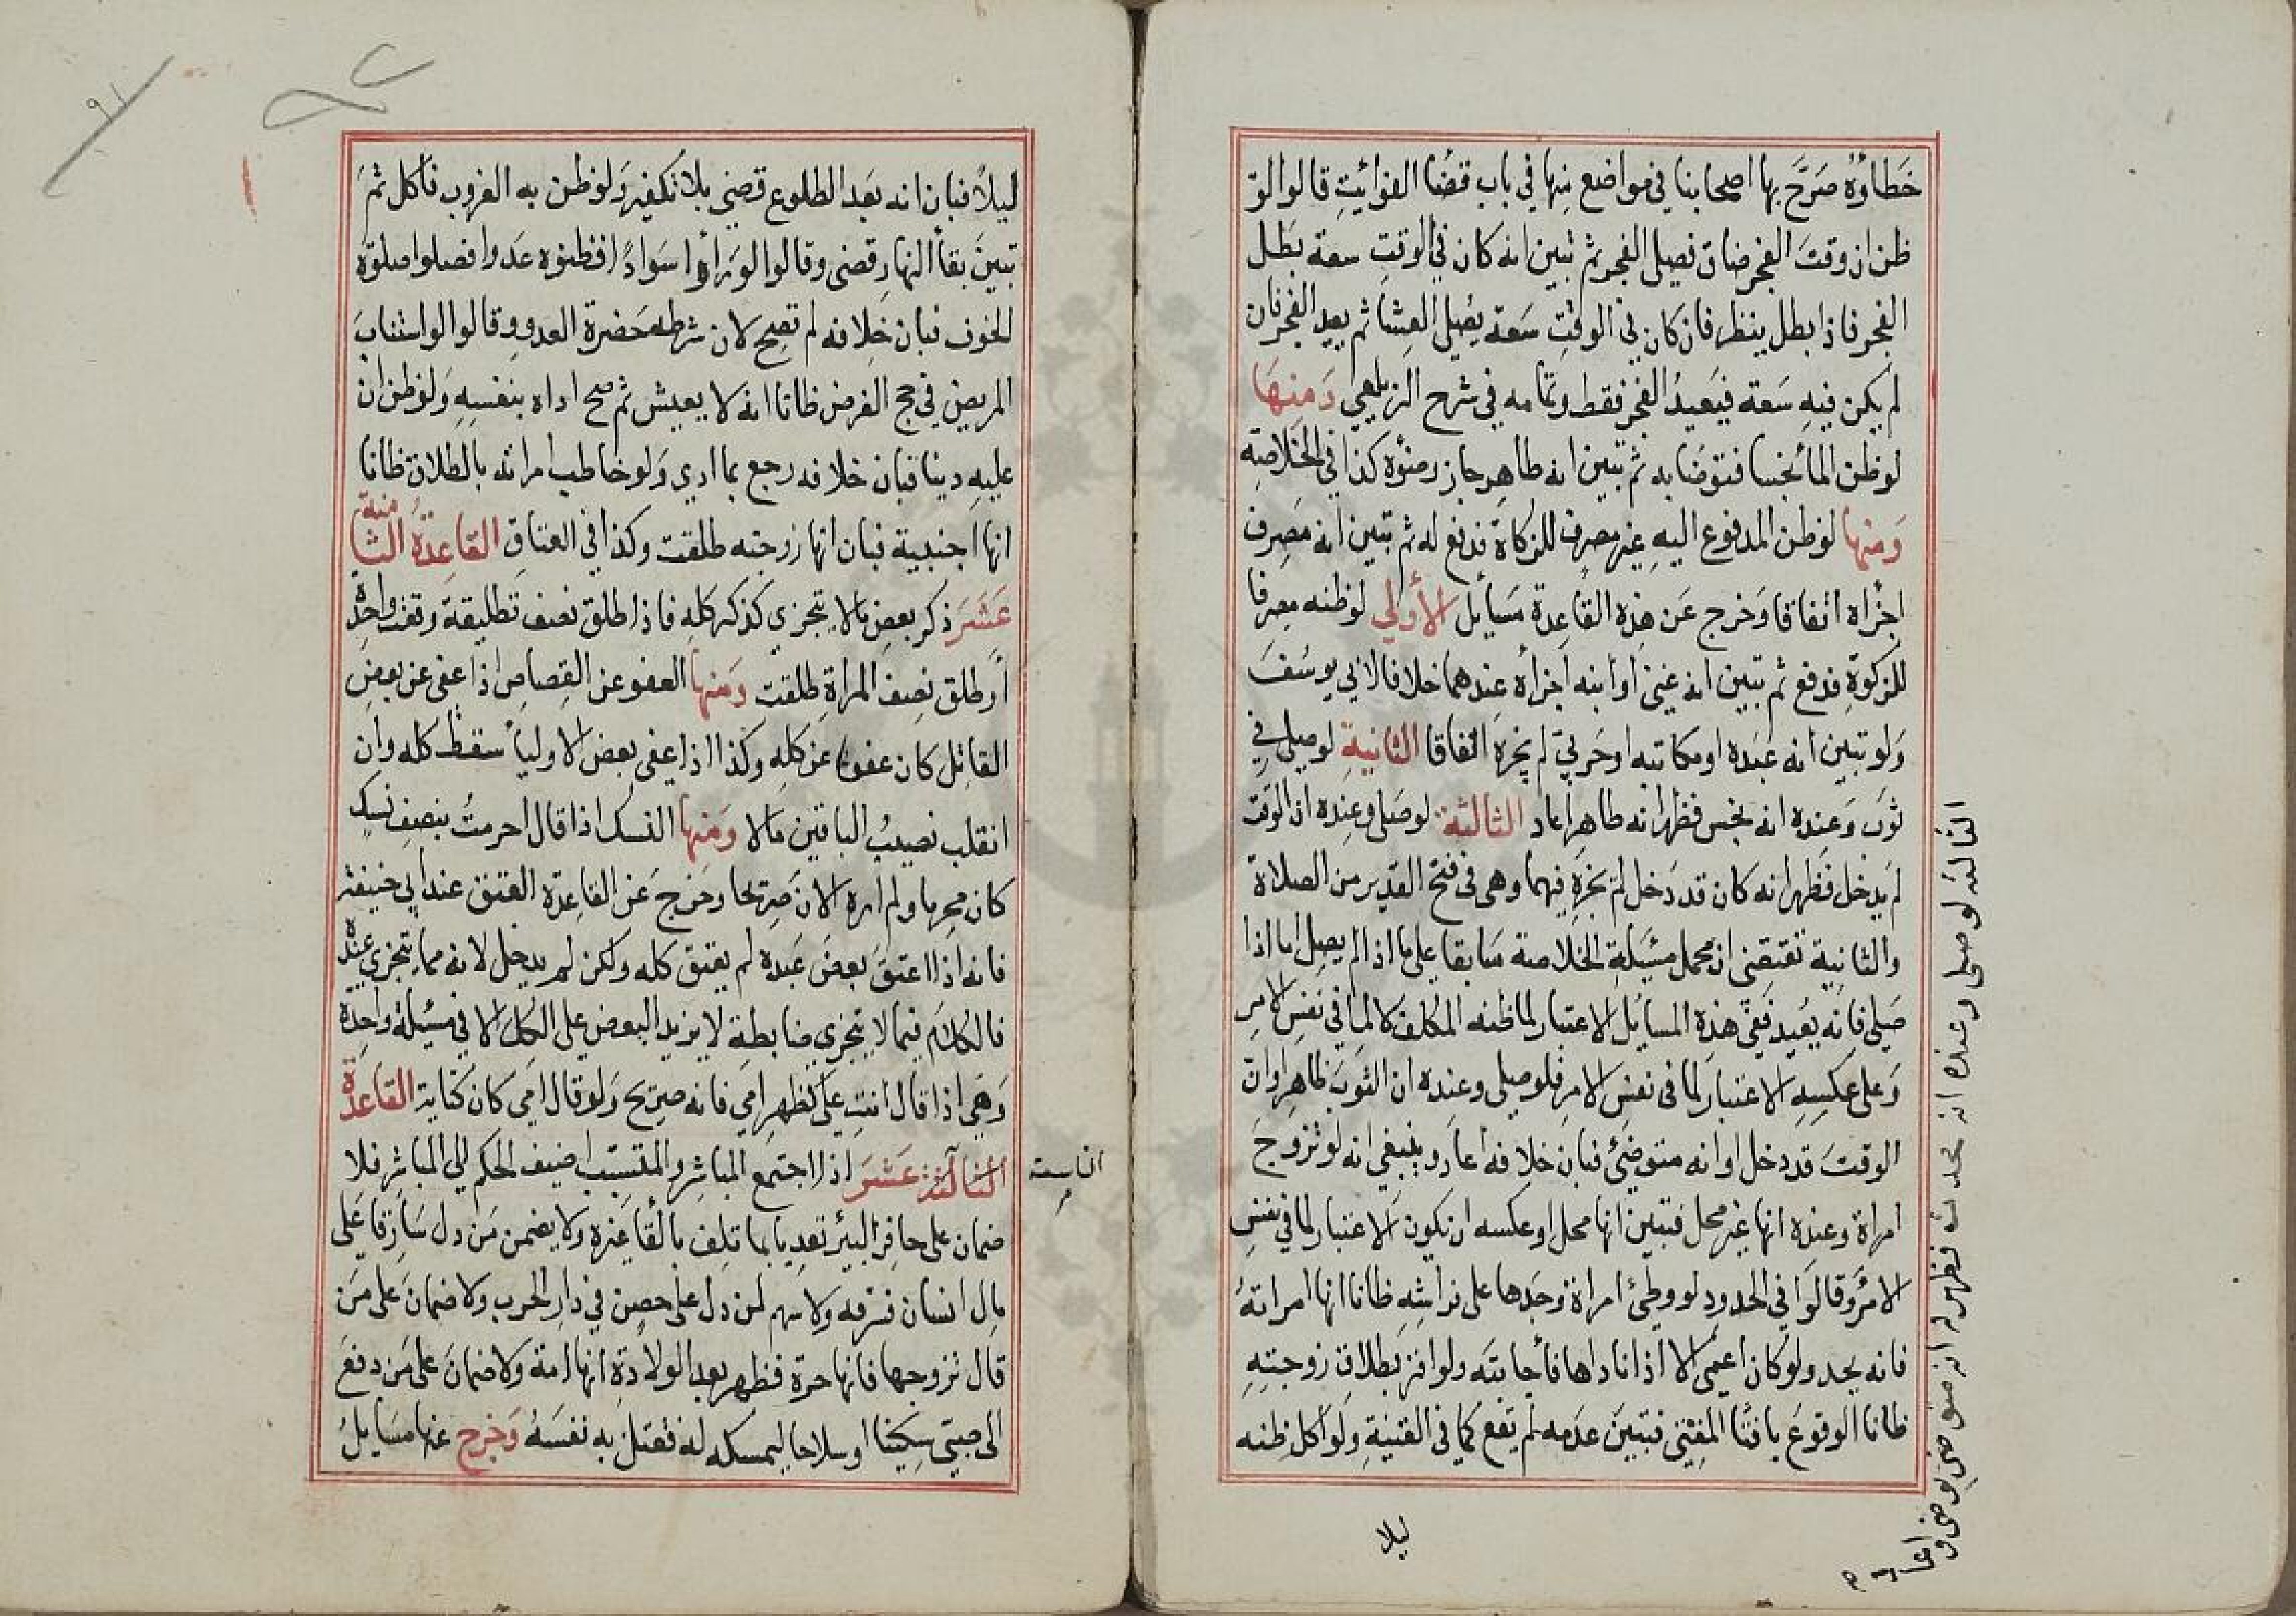 خَطاؤه صَرَّح بها اصحابنا في مواضع منها في باب قضا الفوائيتِ قالوا لو
ظن ان وقتَ الفجر ضاق فصلى الفجر ثم تبين انه كان في الوقتِ سعة بَطل
الفجر فاذا بطل ينظر فان كان في الوقتِ سَعة يُصلي العِشا ثم يعيد الفجر فان
لم يكن فيهِ سَعة فيَعيدُ الفجر فقط وتمامه في شرح الزيلعي وَمِنهَا
لو ظن الما نجسا فتوضا به ثم تبين انه طاهر جاز وضؤه كذا في الخلاصة
وَمنها لو ظن المدفوع اليهِ غير مصرف للزكاة فدفع له ثم تبين انه مَصرِف
اجزأه اتفاقا وَخرج عَن هذِه القاعِدة مَسَايل الأولي لو ظنه مصرفا
للزكوة فدفع ثم تبين انه غني أو ابنه أجزأه عندهما خلافا لابي يوسُفَ
وَلو تبين أنه عَبده او مكاتبه اوحَربيّ لم يجزه اتفاقا الثانيةِ لو صلى في
ثوب وَعنده انه نجس فظهر انه طاهر اعاد الثالثة لو صَلى وعِنده ان الوَقت
لم يَدخل فظهر انه كان قد دَخل لم يجزه فيهما وهى فى فتح القدير من الصلاة
والثانِية تقتضى ان محمل مسئلة الخلاصة سَابقا على ما اذا لم يصل اما اذا
صَلى فانه يُعيد فَفي هذه المسايل الاعتبار لما ظنه المكلف لا لما في نَفسِ الامرِ
وَعلى عكسِهِ الاعتبار لما فى نفس الامر فلو صلى وعنده ان الثوبَ طاهر او ان
الوقتَ قد دخل او انه متوضئ فبان خلافه أعَاد وينبغي انه لو تزوجَ
امراة وعنده انها غير محل فتبين انها محل او عكسه ان تكون الاعتبار لما في نفسِ
الامر وَقالوا في الحدود لو وطئ امراة وَجَدها على فراشِهِ ظانا انها امراتهُ
فانه يحد ولو كان اعمى الا اذا ناداها فأجابته ولو اقر بَطلاق زوجتِهِ
ظانا الوقوعَ بافتا المفتي فتبينَ عدَمه لم يقع كما في القنيةِ ولو اكل ظنه
ليلا
الثالثه لو صلى وعنده انه محدث فظهر له انه متوضي
ليلاً فبان انه بعَد الطلوع قضي بلا تكفير وَلو ظن به الغروب فاكل ثمَ
تبينَ بقأ النهار قضى وقالوا لو رأوا سَوادًا فظنوه عَدوا فصلوا صلوة
الخوف فبان خِلافه لم تصح لان شرطه حَضرة العدو وقالوا لو استنابَ
المريض في حج الفرض ظانا انه لا يعيش ثم صح اداه بنفسِهِ وَلو ظن ان
عليهِ دينا فبان خلافه رجع بما ادي وَلو خاطب امراته بالطلاق ظانا
انها اجنبية فبان انها زوجته طلقت وكذا في العتاقِ القاعِدة الثامنة
عَشَرَ ذكر بعض ما لا يتجزي كذكر كله فاذا طلق نصف تَطليقة وقعت واحِدة
أو طلق نِصف المراةِ طلقت وَمنها العفو عن القِصاصِ اذا عفى عن بعضِ
القاتِل كان عفوا عن كلهِ وكذا اذا عفى بعض الاوليا سقط كله وان
انقلب نصيبُ الباقين مالا وَمِنها النسك اذا قال احرمتُ بنصفِ نسك
كان محرما ولم اره الان صَريحا وخرَج عَن القاعِدة العتق عند ابي حنيفة
فانه اذا اعتقَ بعضَ عَبده لم يعتق كله ولكن لم يدخل لانه مما يتجزي عنده
فالكلام فيما لا يتجزي ضابطة لا يزيد البعض على الكل الا في مسئلة واحِدة
وَهي اذا قال انتِ عليَّ كظهر امي فانه صريح وَلو قال امي كان كناية القاعِدة
التاسعة
الثالثة عَشَرَ اذا اجتمع المباشر والمتسبب اضيف الحكم الي المباشر فلا
ضمان على حافر البئر تعديا بما تلِف بالقا غيره ولا يضمن مَن دل سَارقا على
مال انسان فسَرقه ولا سهم لمن دل على حصِن في دار الحرب ولا ضمانَ على مَن
قال تزوجها فانها حرة فظهر بعد الولادة انها امة ولا ضمانَ على مَن دفعَ
الى صبي سِكينا او سلاحا ليمسكه له فقتل به نفسَهُ وَخرج عنها مسَايلُ